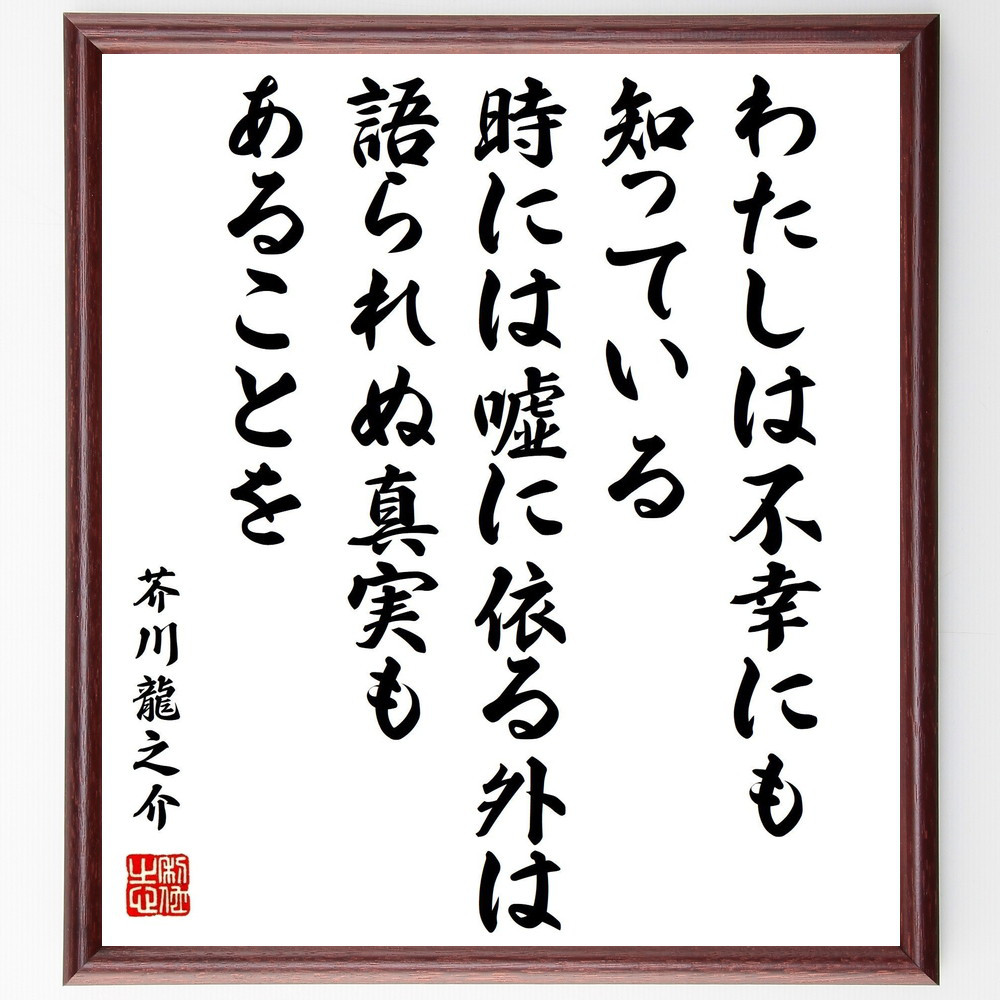 わたしは不幸にも
知っている
時には嘘に依る外は
語られぬ真実も
あることを
芥川龍之介